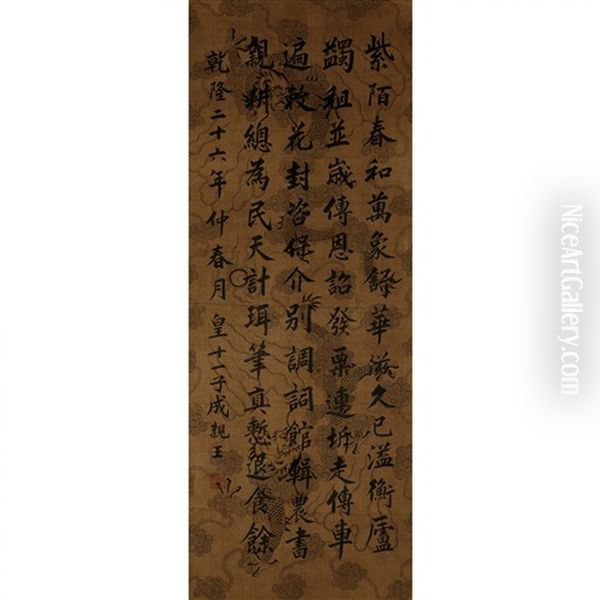 紫陌春和萬象舒華滋久已溢衡廬
蠲租並歲傳恩詔發粟連坼走傳車
遍敕花封咨保介別調詞館輯農書
親耕總為民天計珥筆真慙退食餘
乾隆二十六年仲春月皇十一子成親王
NiceArtGallery.com